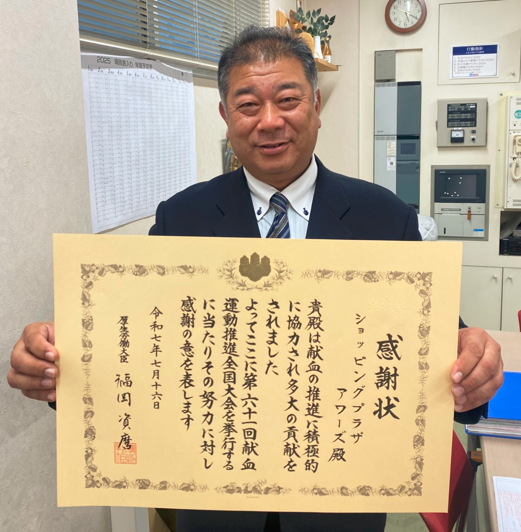 感謝状
ショッピングプラザ
アワーズ殿
貴殿は献血の推進に積極的
に協力され多大の貢献を
されました
よってここに第六十一回献血
運動推進全国大会を挙行する
に当たりその努力に対し
感謝の意を表します
令和七年七月十六日
厚生労働大臣 福岡資麿
2025